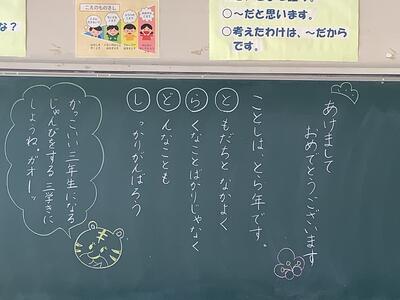 な？
こえのものさし
○～だと思います。
○考えたわけは、～だから
です。
あけまして
おめでとうございます
ことしは、とら年です。
ともだちとなかよく
らくなことばかりじゃなく
どんなことも
しっかりがんばろう
かっこいい三年生になる
じゅんびをする三学きに
しようね。ガオーッ